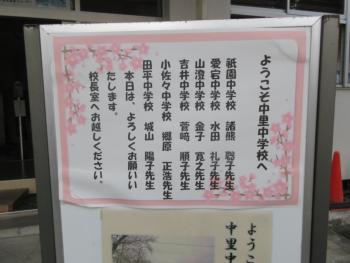 ようこそ中里中学校へ
祇園中学校 諸熊 聡子先生
愛宕中学校 水田 礼子先生
山澄中学校 金子 寛之先生
吉井中学校 菅﨑 順子先生
小佐々中学校 郷原 正浩先生
田平中学校 城山 陽子先生
本日は、よろしくお願いい
たします。
校長室へお越しください。
ようこ
中里中